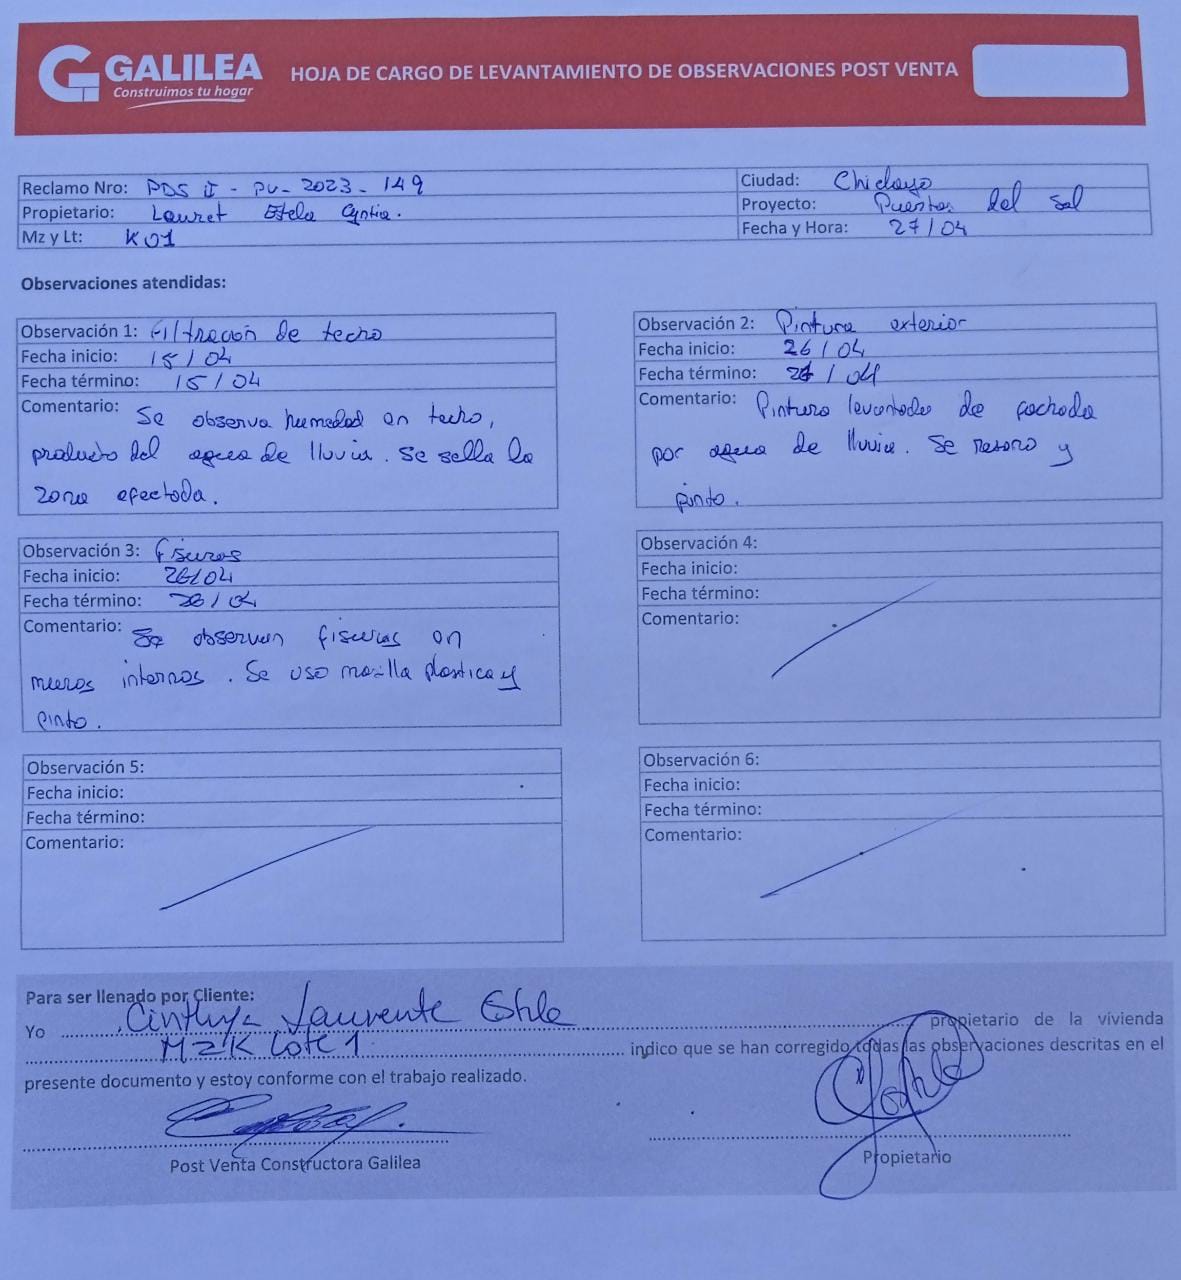 GALILEA
Construimos tu hogar
HOJA DE CARGO DE LEVANTAMIENTO DE OBSERVACIONES POST VENTA
Reclamo Nro: PDS II - PV - 2023 - 149
Propietario: Lauret Estela Cyntia.
Mz y Lt: K01
Ciudad: Chiclayo
Proyecto: Puertas del Sol
Fecha y Hora: 27/04
Observaciones atendidas:
Observación 1: Filtración de techo
Fecha inicio: 15/04
Fecha término: 15/04
Comentario: Se observa humedad en techo,
producto del agua de lluvia. Se sella la
zona afectada.
Observación 2: Pintura exterior
Fecha inicio: 26/04
Fecha término: 27/04
Comentario: Pintura levantada de fachada
por agua de lluvia. Se resano y
pinto.
Observación 3: fisuras
Fecha inicio: 26/04
Fecha término: 26/04
Comentario: Se observan fisuras en
muros internos. Se uso masilla plastica y
pinto.
Observación 4:
Fecha inicio:
Fecha término:
Comentario:
Observación 5:
Fecha inicio:
Fecha término:
Comentario:
Observación 6:
Fecha inicio:
Fecha término:
Comentario:
Para ser llenado por Cliente:
Yo Cinthya Laurente Estela propietario de la vivienda
MZK Lote 1 indico que se han corregido todas las observaciones descritas en el
presente documento y estoy conforme con el trabajo realizado.
Post Venta Constructora Galilea
Propietario